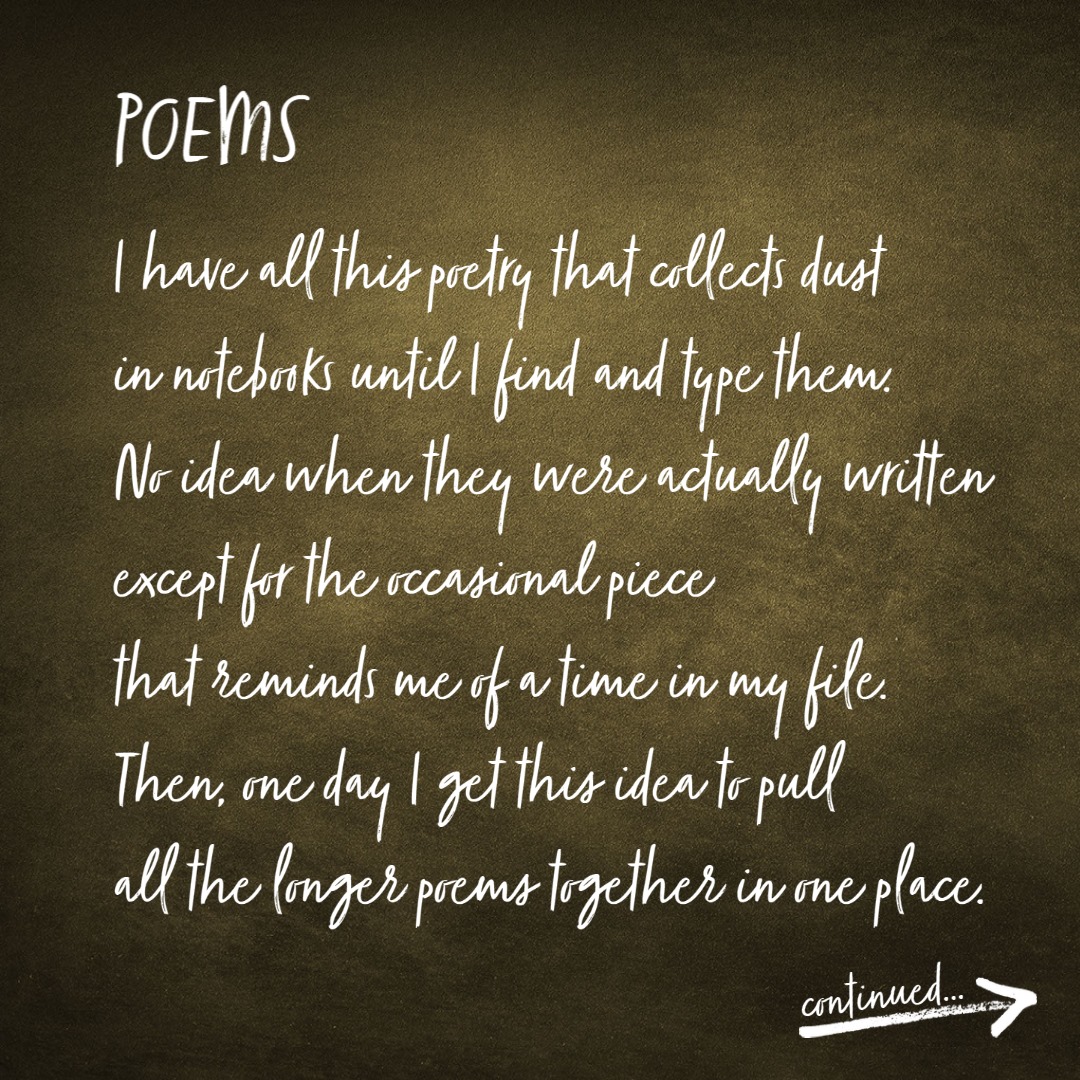 POEMS
I have all this poetry that collects dust
in notebooks until I find and type them.
No idea when they were actually written
except for the occasional piece
that reminds me of a time in my file.
Then, one day I get this idea to pull
all the longer poems together in one place.
continued...